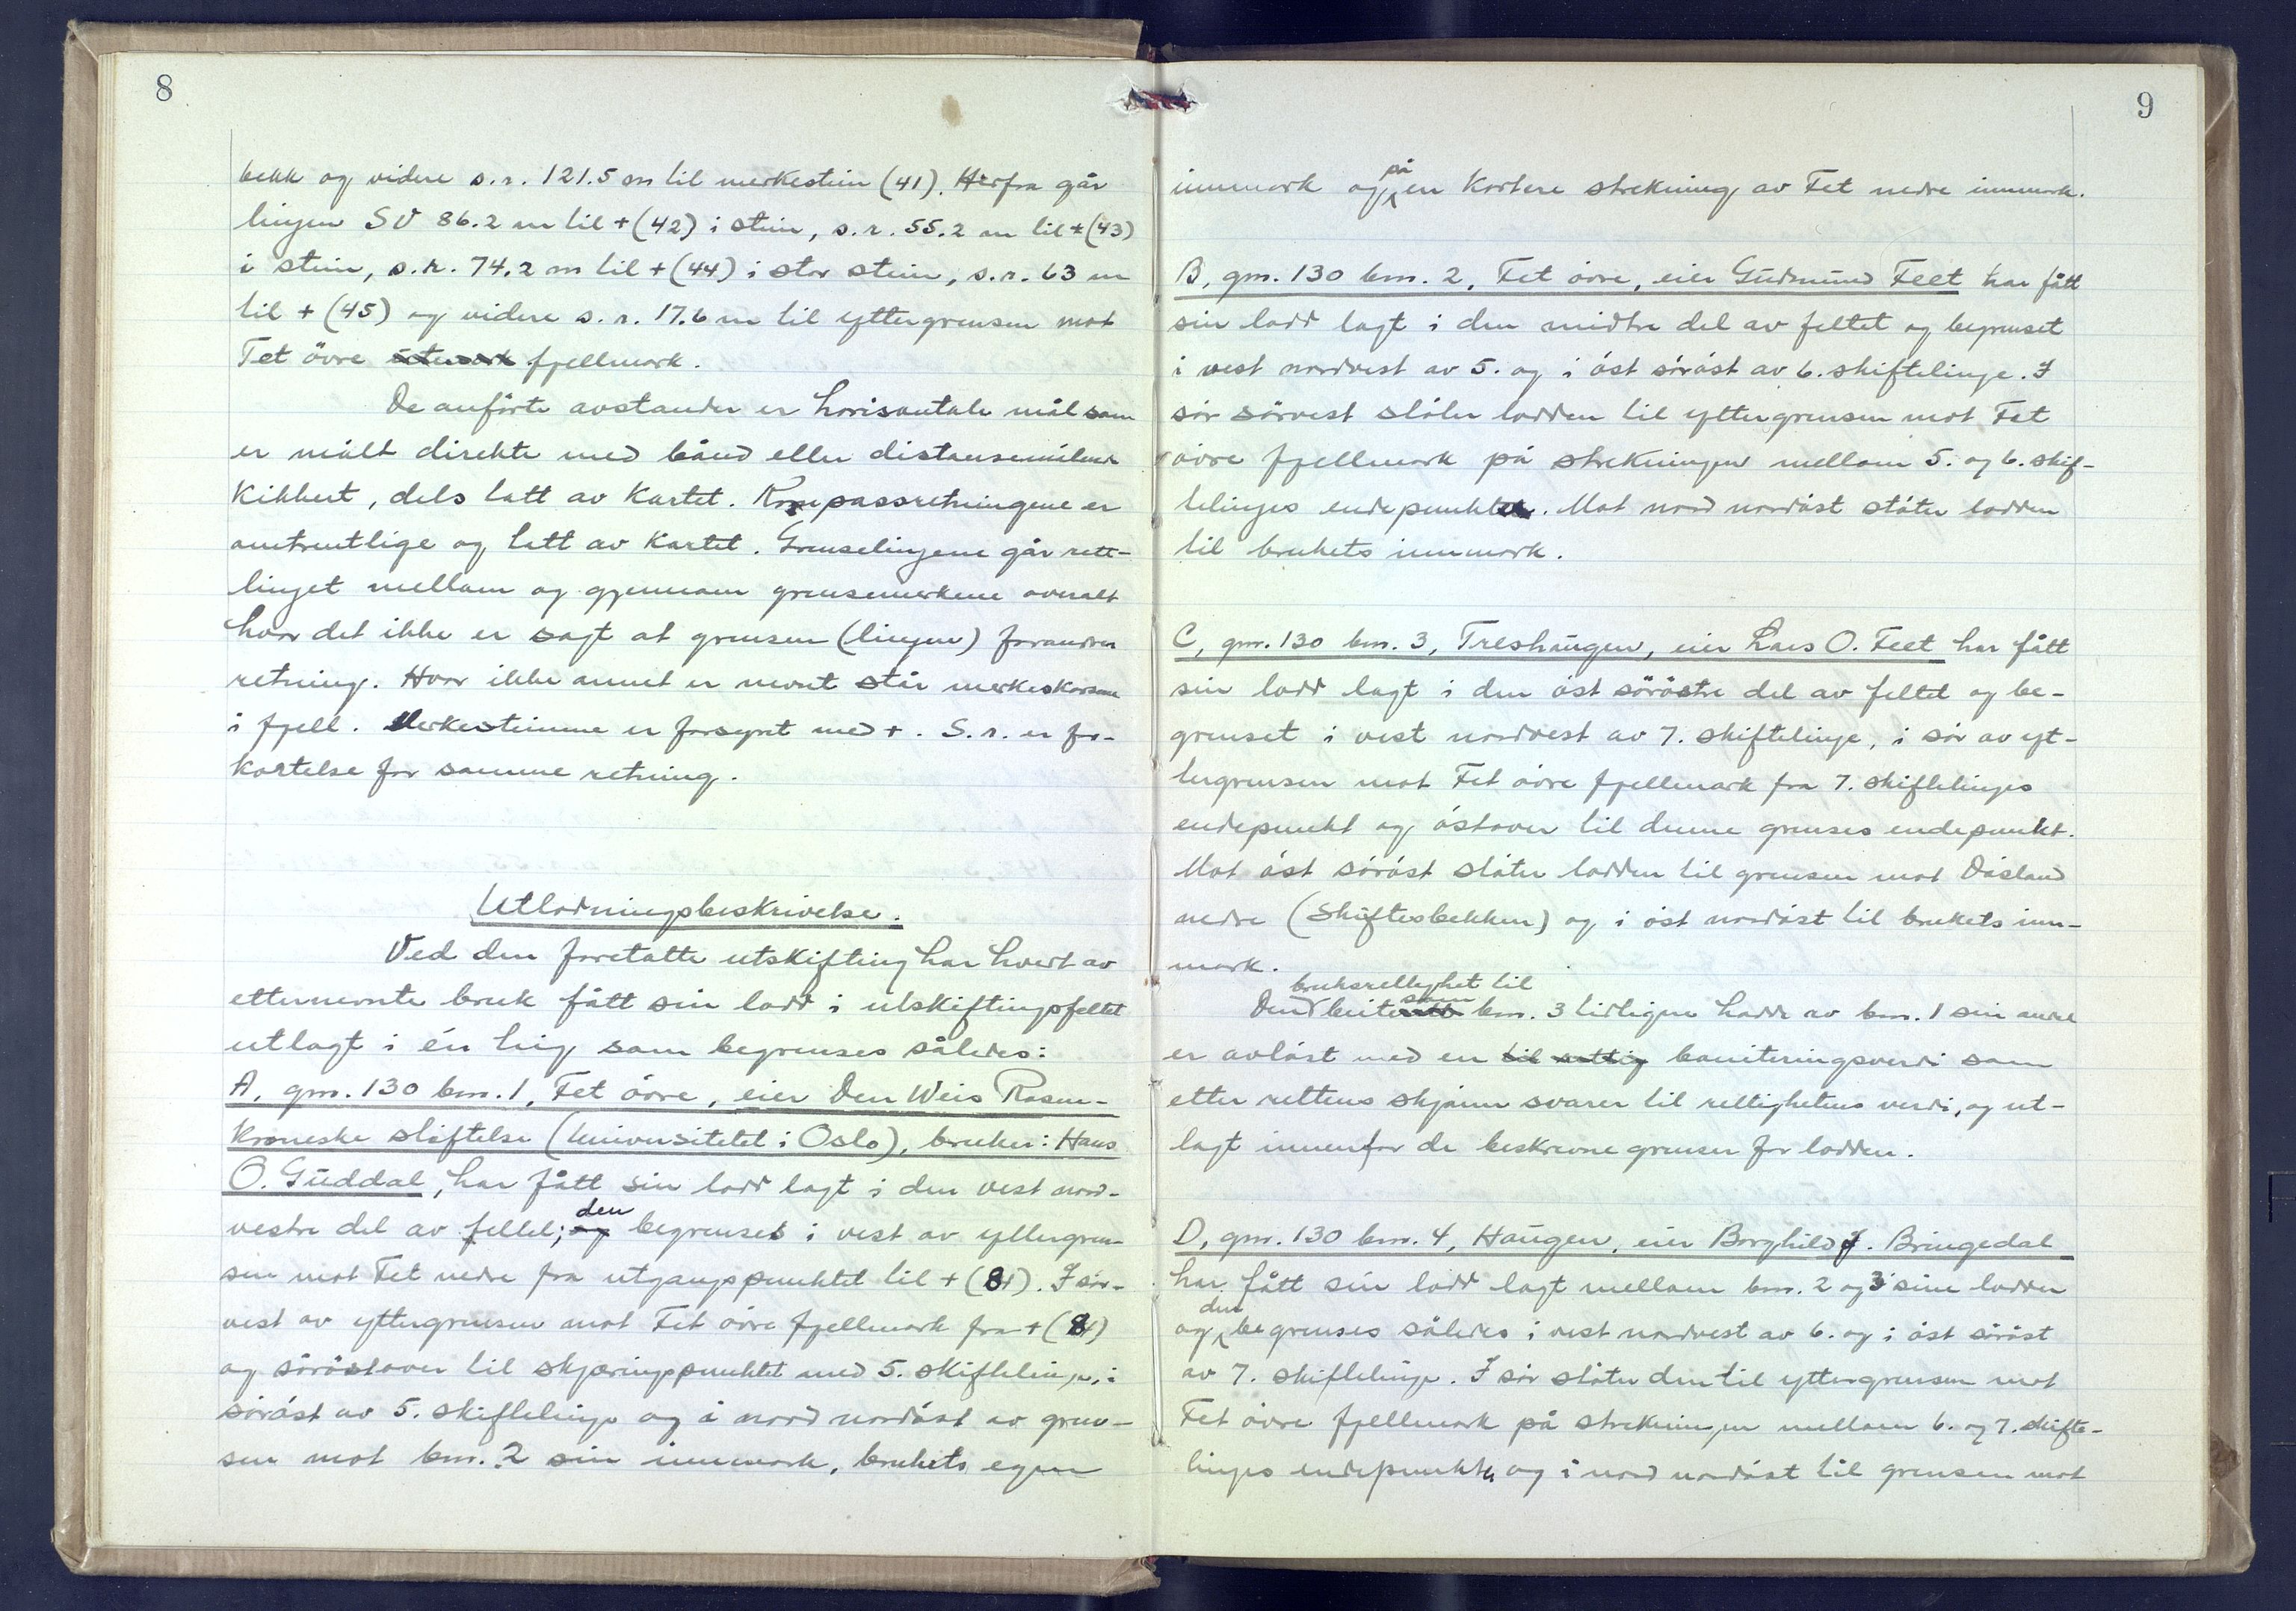 8
bekk og videre s.r. 121.5 m til merkestein (41). Herfra går
linjen SV 86.2 m til + (42) i stein, s.r. 55.2 m til + (43)
i stein, s.r. 74.2 m til + (44) i stor stein, s.r. 63 m
til + (45) og videre s.r. 17.6 m til yttergrensen mot
Fet övre utmark fjellmark.
De anförte avstander er horisontale mål som
er målt direkte med bånd eller distansemålende
kikkert, dels tatt av kartet. Kompassretningene er
omtrentlige og tatt av kartet. Grenselinjene går rett-
linjet mellom og gjennom grensemerkene overalt
hvor det ikke er sagt at grensen (linjen) forandrer
retning. Hvor ikke annet er nevnt står merkekorsene
i fjell. Merkesteinene er forsynt med +. S.r. er for-
kortelse for samme retning.
Utlodningsbeskrivelse.
Ved den foretatte utskifting har hvert av
etternevnte bruk fått sin lodd i utskiftingsfeltet
utlagt i én teig som begrenses således:
A, gnr. 130 bnr. 1, Fet övre, eier Den Weis Rosen-
kroneske stiftelse (Universitetet i Oslo), bruker: Hans
O. Guddal, har fått sin lodd lagt i den vest nord-
vestre del av feltet; og den begrenses i vest av yttergren-
sen mot Fet nedre fra utgangspunktet til + (81). I sör-
vest av yttergrensen mot Fet övre fjellmark fra + (81)
og söröstover til skjæringspunktet med 5. skiftelinje, i
söröst av 5. skiftelinje og i nord nordöst av gren-
sen mot bnr. 2 sin innmark, brukets egen
9
innmark og på en kortere strekning av Fet nedre innmark.
B, gnr. 130 bnr. 2, Fet övre, eier Gudmund Feet har fått
sin lodd lagt i den midtre del av feltet og begrenset
i vest nordvest av 5. og i öst söröst av 6. skiftelinje. I
sör sörvest stöter lodden til yttergrensen mot Fet
övre fjellmark på strekningen mellom 5. og 6. skif-
telinjes endepunkter. Mot nord nordöst stöter lodden
til brukets innmark.
C, gnr. 130 bnr. 3, Treshaugen, eier Lars O. Feet har fått
sin lodd lagt i den öst söröstre del av feltet og be-
grenset i vest nordvest av 7. skiftelinje, i sör av yt-
tergrensen mot Fet övre fjellmark fra 7. skiftelinjes
endepunkt og östover til denne grenses endepunkt.
Mot öst söröst stöter lodden til grensen mot Dösland
nedre (Skiftesbekken) og i öst nordöst til brukets inn-
mark.
bruksrettighet til
Den beite som bnr. 3 tidligere hadde av bnr. 1 sin andel
er avlöst med en til rettig boniteringsverdi som
etter rettens skjönn svarer til rettighetens verdi, og ut-
lagt innenfor de beskrevne grenser for lodden.
D, gnr. 130 bnr. 4, Haugen, eier Borghild J. Bringedal
har fått sin lodd lagt mellom bnr. 2 og 3 sine lodder
og den begrenses således i vest nordvest av 6. og i öst söröst
av 7. skiftelinje. I sör stöter den til yttergrensen mot
Fet övre fjellmark på strekningen mellom 6. og 7. skifte-
linjes endepunkter og i nord nordöst til grensen mot